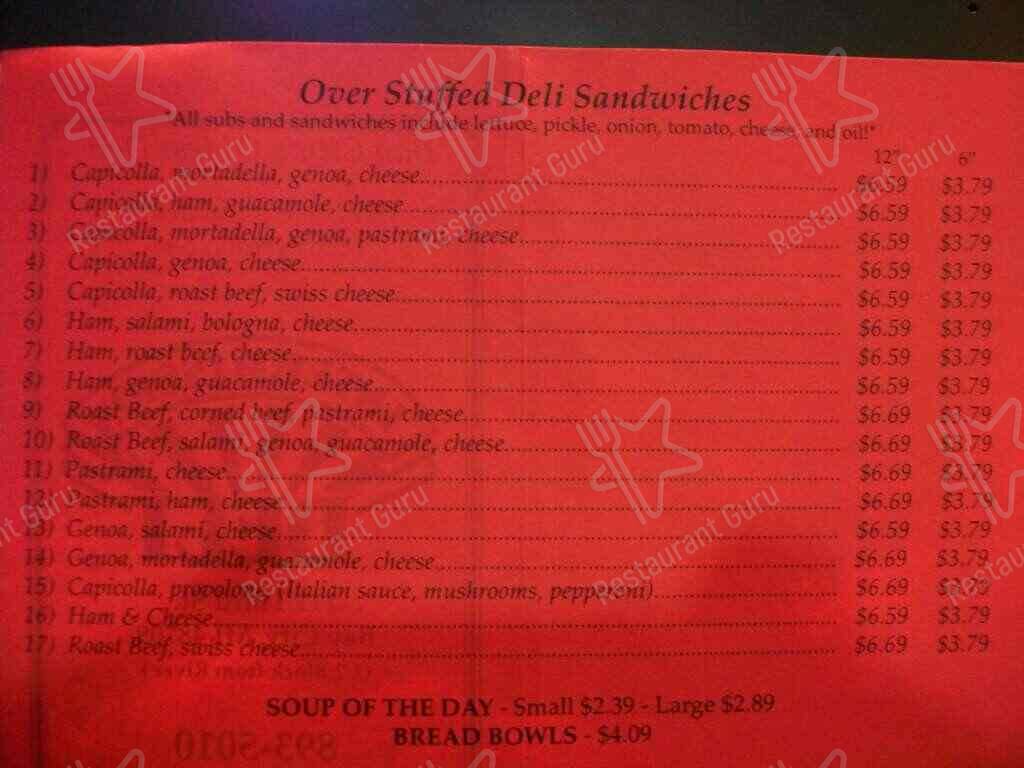 Over Stuffed Deli Sandwiches
"All subs and sandwiches include lettuce, pickle, onion, tomato, cheese, and oil!"
12" 6"
1) Capicolla, mortadella, genoa, cheese $6.59 $3.79
2) Capicolla, ham, guacamole, cheese $6.59 $3.79
3) Capicolla, mortadella, genoa, pastrami, cheese $6.59 $3.79
4) Capicolla, genoa, cheese $6.59 $3.79
5) Capicolla, roast beef, swiss cheese $6.59 $3.79
6) Ham, salami, bologna, cheese $6.59 $3.79
7) Ham, roast beef, cheese $6.59 $3.79
8) Ham, genoa, guacamole, cheese $6.59 $3.79
9) Roast Beef, corned beef, pastrami, cheese $6.69 $3.79
10) Roast Beef, salami, genoa, guacamole, cheese $6.69 $3.79
11) Pastrami, cheese $6.69 $3.79
12) Pastrami, ham, cheese $6.69 $3.79
13) Genoa, salami, cheese $6.59 $3.79
14) Genoa, mortadella, guacamole, cheese $6.69 $3.79
15) Capicolla, provolone (Italian sauce, mushrooms, pepperoni) $6.69
16) Ham & Cheese $6.59 $3.79
17) Roast Beef, swiss cheese $6.69 $3.79
SOUP OF THE DAY - Small $2.39 - Large $2.89
BREAD BOWLS - $4.09
893-5010
Restaurant Guru